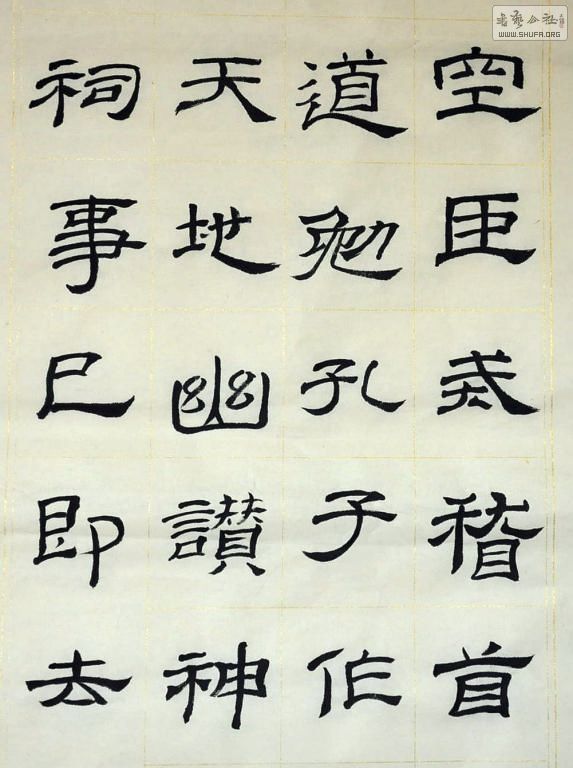 空臣戒稽首
道勉孔子作
天地幽讃神
祠事已即去
书艺公社
WWW.SHUFA.ORG